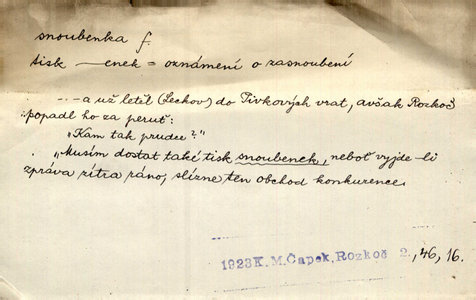 snoubenka f.
tisk —enek = oznámení o zasnoubení
-.- a už letěl (Lechov) do Pivkových vrat, avšak Rozkoč
popadl ho za peruť:
"Kam tak prudce?"
"Musím dostat také tisk snoubenek, neboť vyjde-li
zpráva zítra ráno, slízne ten obchod konkurence.
1923 K. M. Čapek, Rozkoč 2, 46, 16.